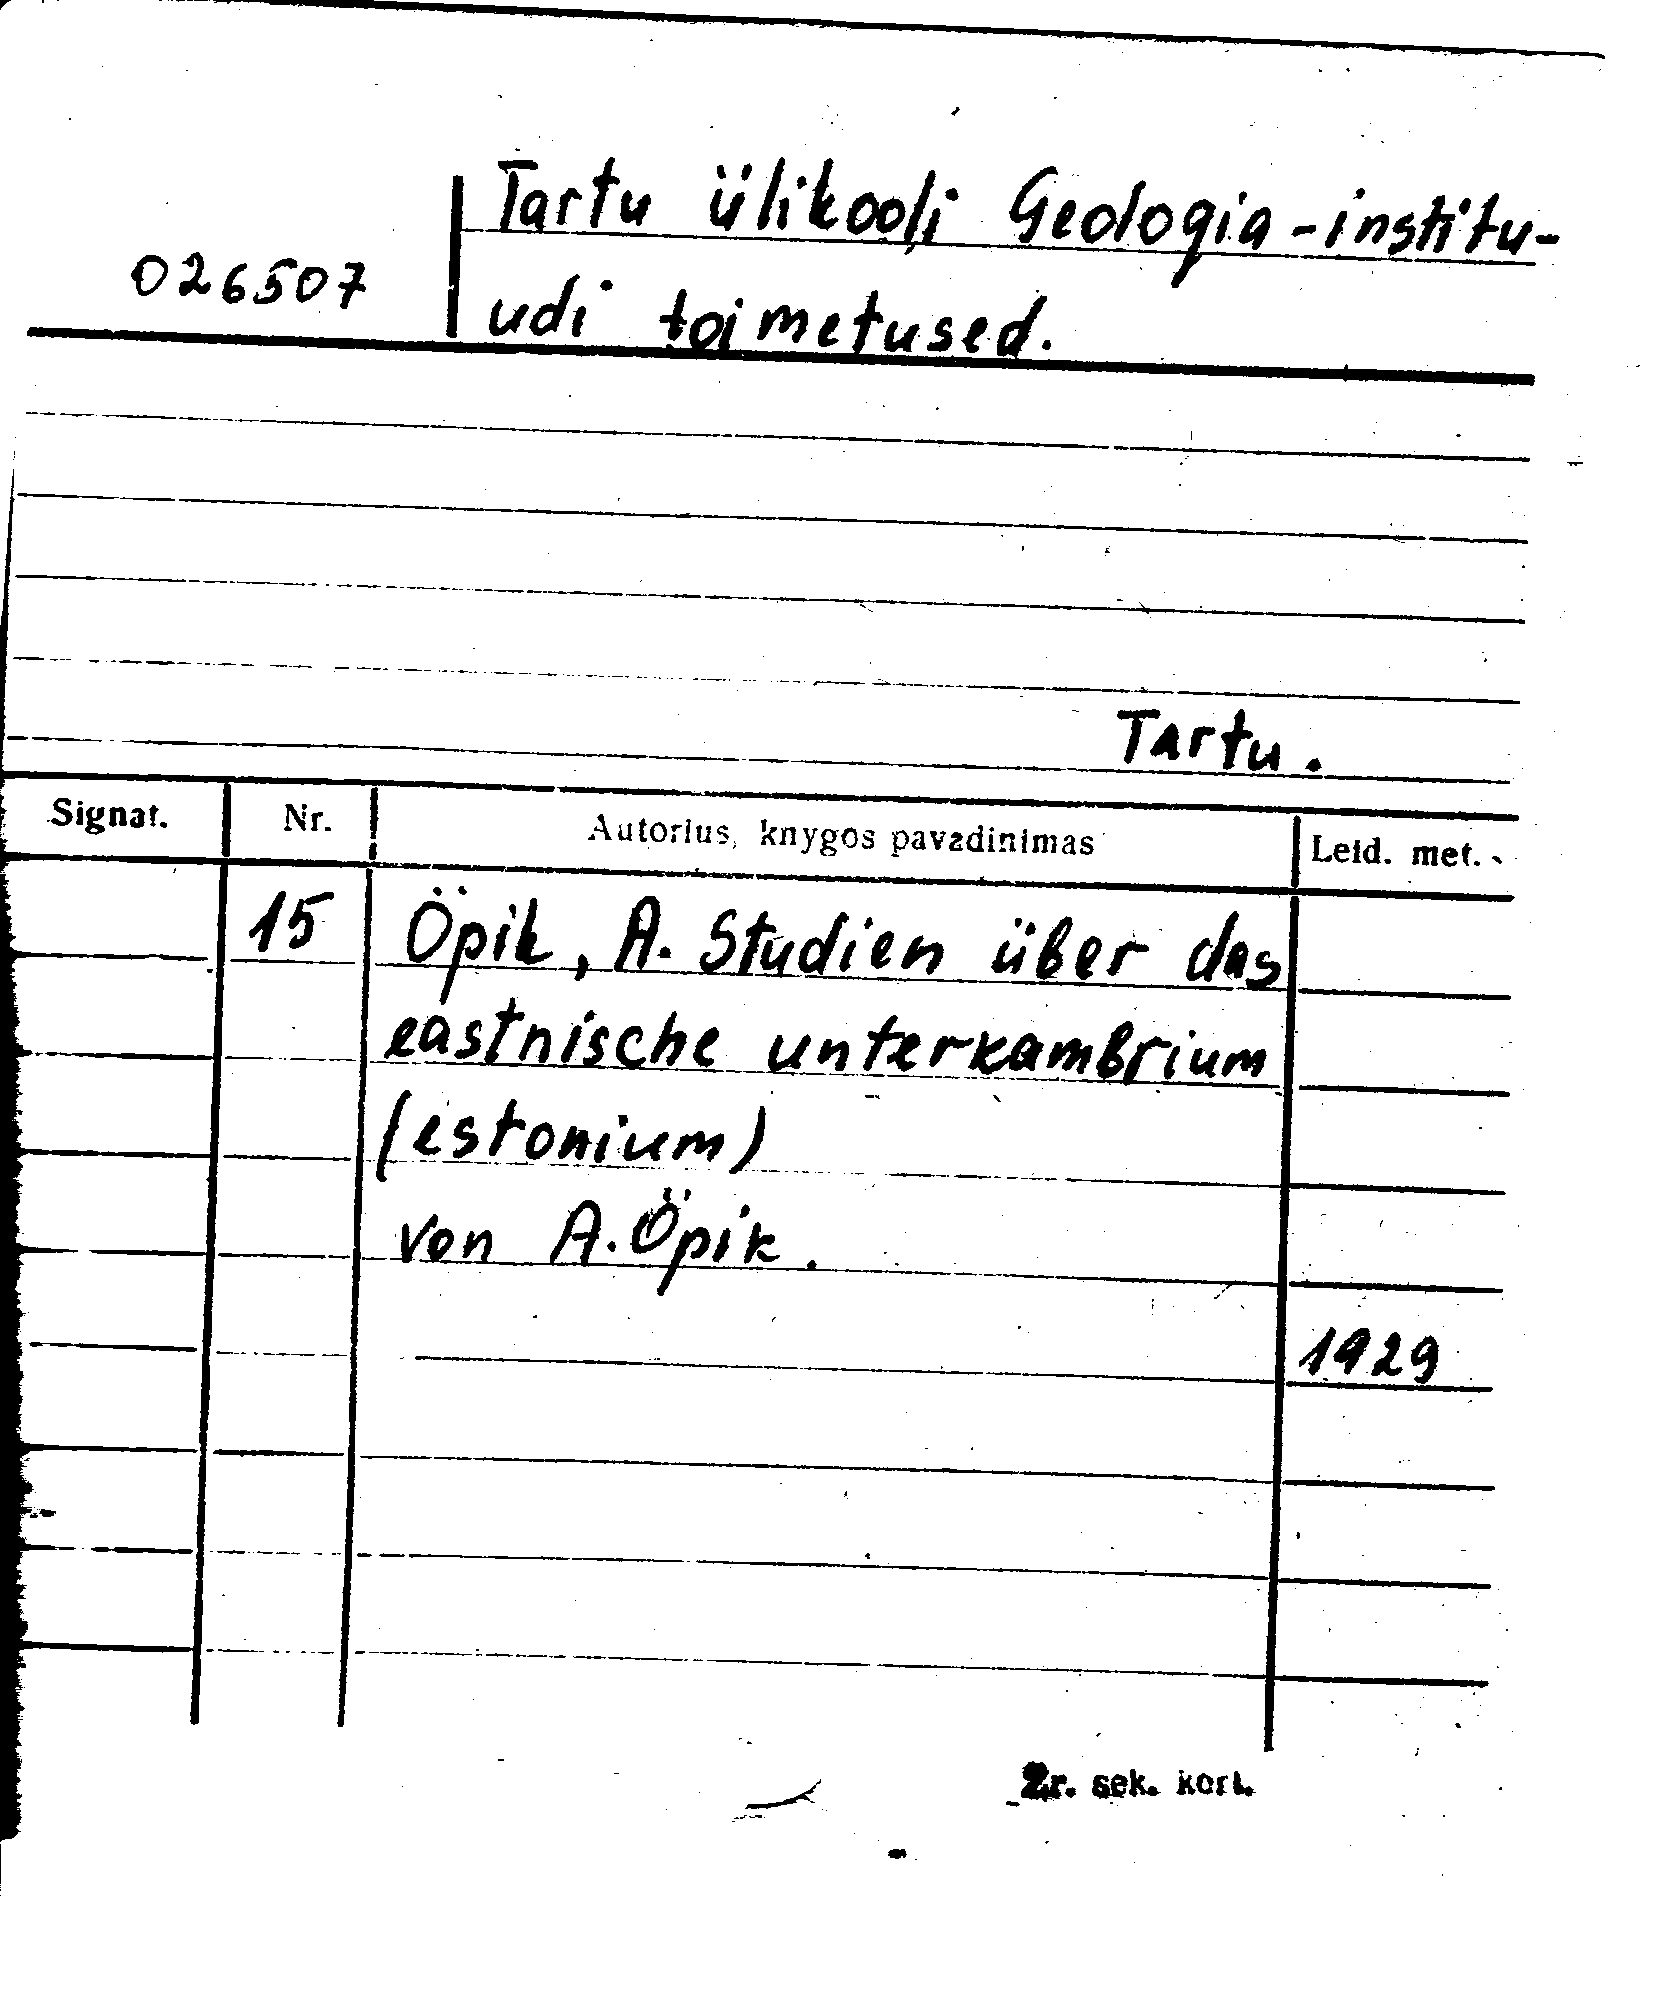 Tartu ülikooli Geologia-institu-
026507
udi toimetused.
Tartu.
Signat. Nr. Autorius, knygos pavadinimas Leid. met.
15 Öpik, A. Studien über das
eastnische unterkambrium
(estonium)
von A. Öpik.
1929
Žr. sek. kort.